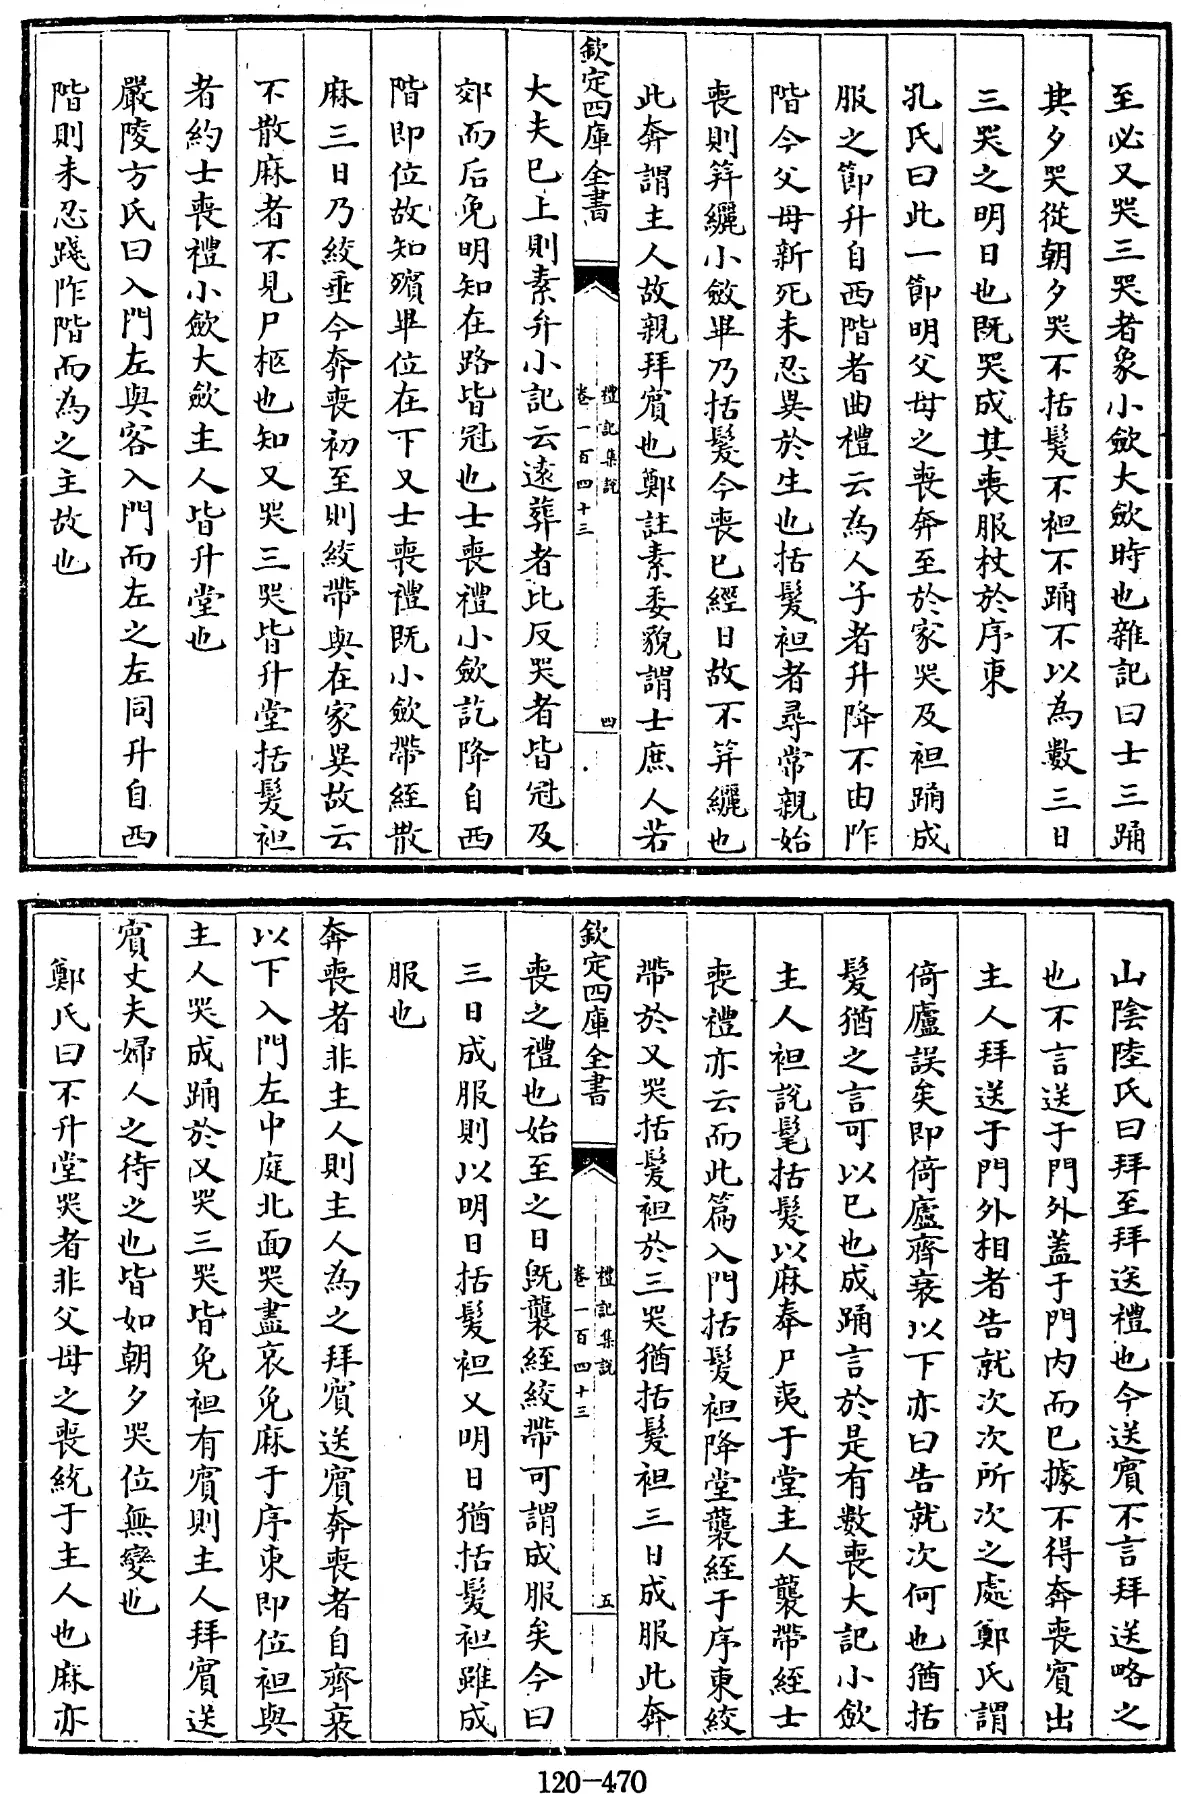 至必又哭三哭者象小斂大斂時也雜記曰士三踊
其夕哭從朝夕哭不括髮不袒不踊不以為數三日
三哭之明日也既哭成其喪服杖於序東
孔氏曰此一節明父母之喪奔至於家哭及袒踊成
服之節升自西階者曲禮云為人子者升降不由阼
階今父母新死未忍異於生也括髮袒者尋常親始
喪則筓纚小斂畢乃括髮今喪已經日故不筓纚也
此奔謂主人故親拜賓也鄭註素委貌謂士庶人若
欽定四庫全書
禮記集說
卷一百四十三
四
大夫已上則素弁小記云遠葬者比反哭者皆冠及
郊而后免明知在路皆冠也士喪禮小斂訖降自西
階即位故知殯畢位在下又士喪禮既小斂帶絰散
麻三日乃絞垂今奔喪初至則絞帶與在家異故云
不散麻者不見尸柩也知又哭三哭皆升堂括髮袒
者約士喪禮小斂大斂主人皆升堂也
嚴陵方氏曰入門左與客入門而左之左同升自西
階則未忍踐阼階而為之主故也
山陰陸氏曰拜至拜送禮也今送賓不言拜送略之
也不言送于門外蓋于門内而已據不得奔喪賓出
主人拜送于門外相者告就次次所次之處鄭氏謂
倚廬誤矣即倚廬齊衰以下亦曰告就次何也猶括
髮猶之言可以已也成踊言於是有數喪大記小斂
主人袒說髦括髮以麻奉尸夷于堂主人襲帶絰士
喪禮亦云而此篇入門括髮袒降堂襲絰于序東絞
帶於又哭括髮袒於三哭猶括髮袒三日成服此奔
欽定四庫全書
禮記集說
卷一百四十三
五
喪之禮也始至之日既襲絰絞帶可謂成服矣今曰
三日成服則以明日括髮袒又明日猶括髮袒雖成
服也
奔喪者非主人則主人為之拜賓送賓奔喪者自齊衰
以下入門左中庭北面哭盡哀免麻于序東即位袒與
主人哭成踊於又哭三哭皆免袒有賓則主人拜賓送
賓丈夫婦人之待之也皆如朝夕哭位無變也
鄭氏曰不升堂哭者非父母之喪統于主人也麻亦
120-470